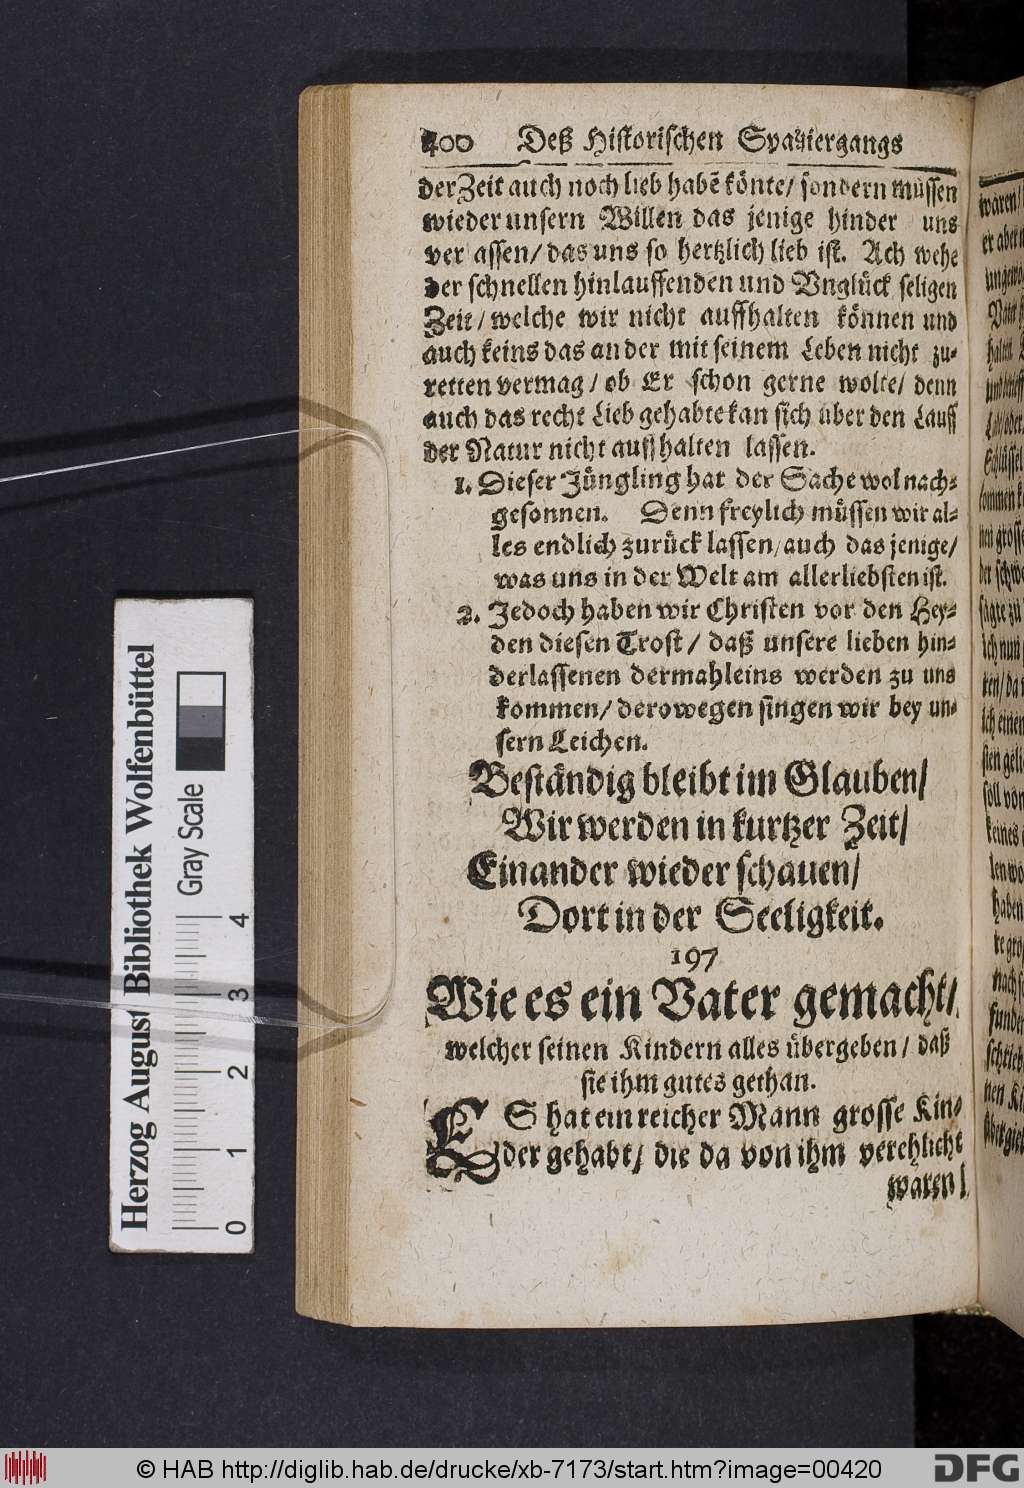 400 Deß Historischen Spatziergangs
der Zeit auch noch lieb habē könte/ sondern müssen
wieder unsern Willen das jenige hinder uns
ver assen/ das uns so hertzlich lieb ist. Ach wehe
der schnellen hinlauffenden und Vnglück seligen
Zeit/ welche wir nicht auffhalten können und
auch keins das ander mit seinem Leben nicht zu-
retten vermag/ ob Er schon gerne wolte/ denn
auch das recht Lieb gehabte kan sich über den Lauff
der Natur nicht auffhalten lassen.
1. Dieser Jüngling hat der Sache wol nach-
gesonnen. Denn freylich müssen wir al-
les endlich zurück lassen/ auch das jenige/
was uns in der Welt am allerliebsten ist.
2. Jedoch haben wir Christen vor den Hey-
den diesen Trost/ daß unsere lieben hin-
derlassenen dermahleins werden zu uns
kommen/ derowegen singen wir bey un-
sern Leichen.
Beständig bleibt im Glauben/
Wir werden in kurtzer Zeit/
Einander wieder schauen/
Dort in der Seeligkeit.
197
Wie es ein Vater gemacht/
welcher seinen Kindern alles übergeben/ daß
sie ihm gutes gethan.
ES hat ein reicher Mann grosse Kin-
der gehabt/ die da von ihm verehlicht
waren/
waren/
er aber
Vater
halten
Schlüssel
kommen
grosse
der
sagte zu
ich nun
ich einen
soll von
keines
haben
nach
Herzog August Bibliothek Wolfenbüttel
Gray Scale
0 1 2 3 4
© HAB http://diglib.hab.de/drucke/xb-7173/start.htm?image=00420
DFG